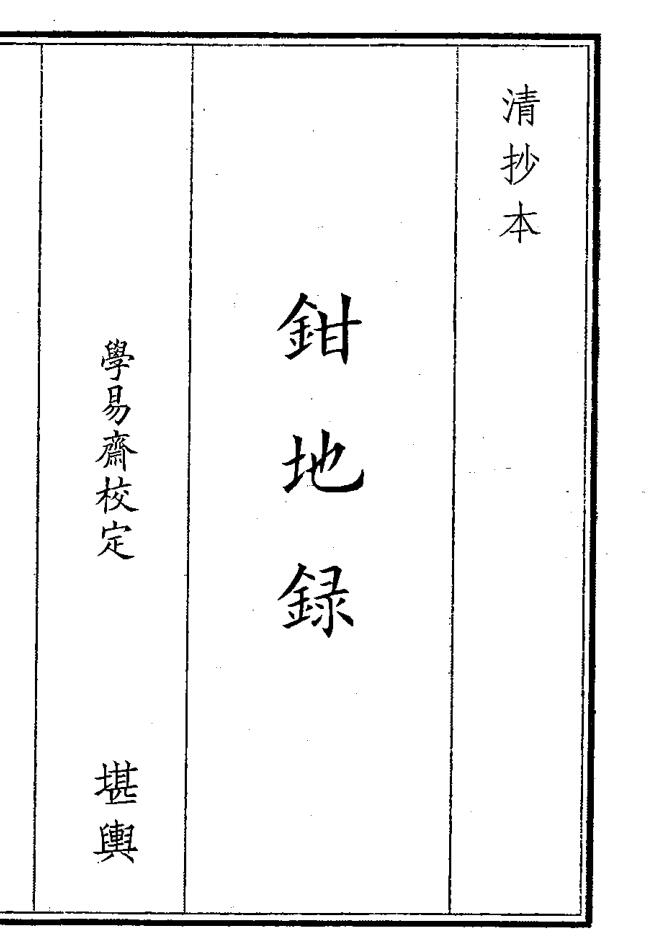 清抄本
鉗地録
學易齋校定
堪輿